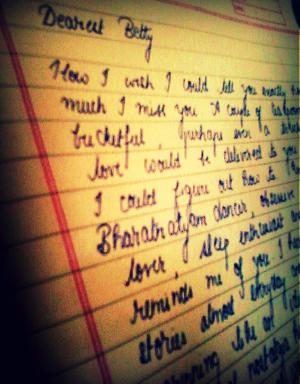 Dearest Betty
How I wish I could tell you exactly
much I miss you. A couple of
bucketful, perhaps even a
love would be delivered to you
I could figure out how to
Bharatnatyam dancer, obsessive
lover, sleep enthusiast
reminds me of you. I
stories almost everyday
like
nostalgia